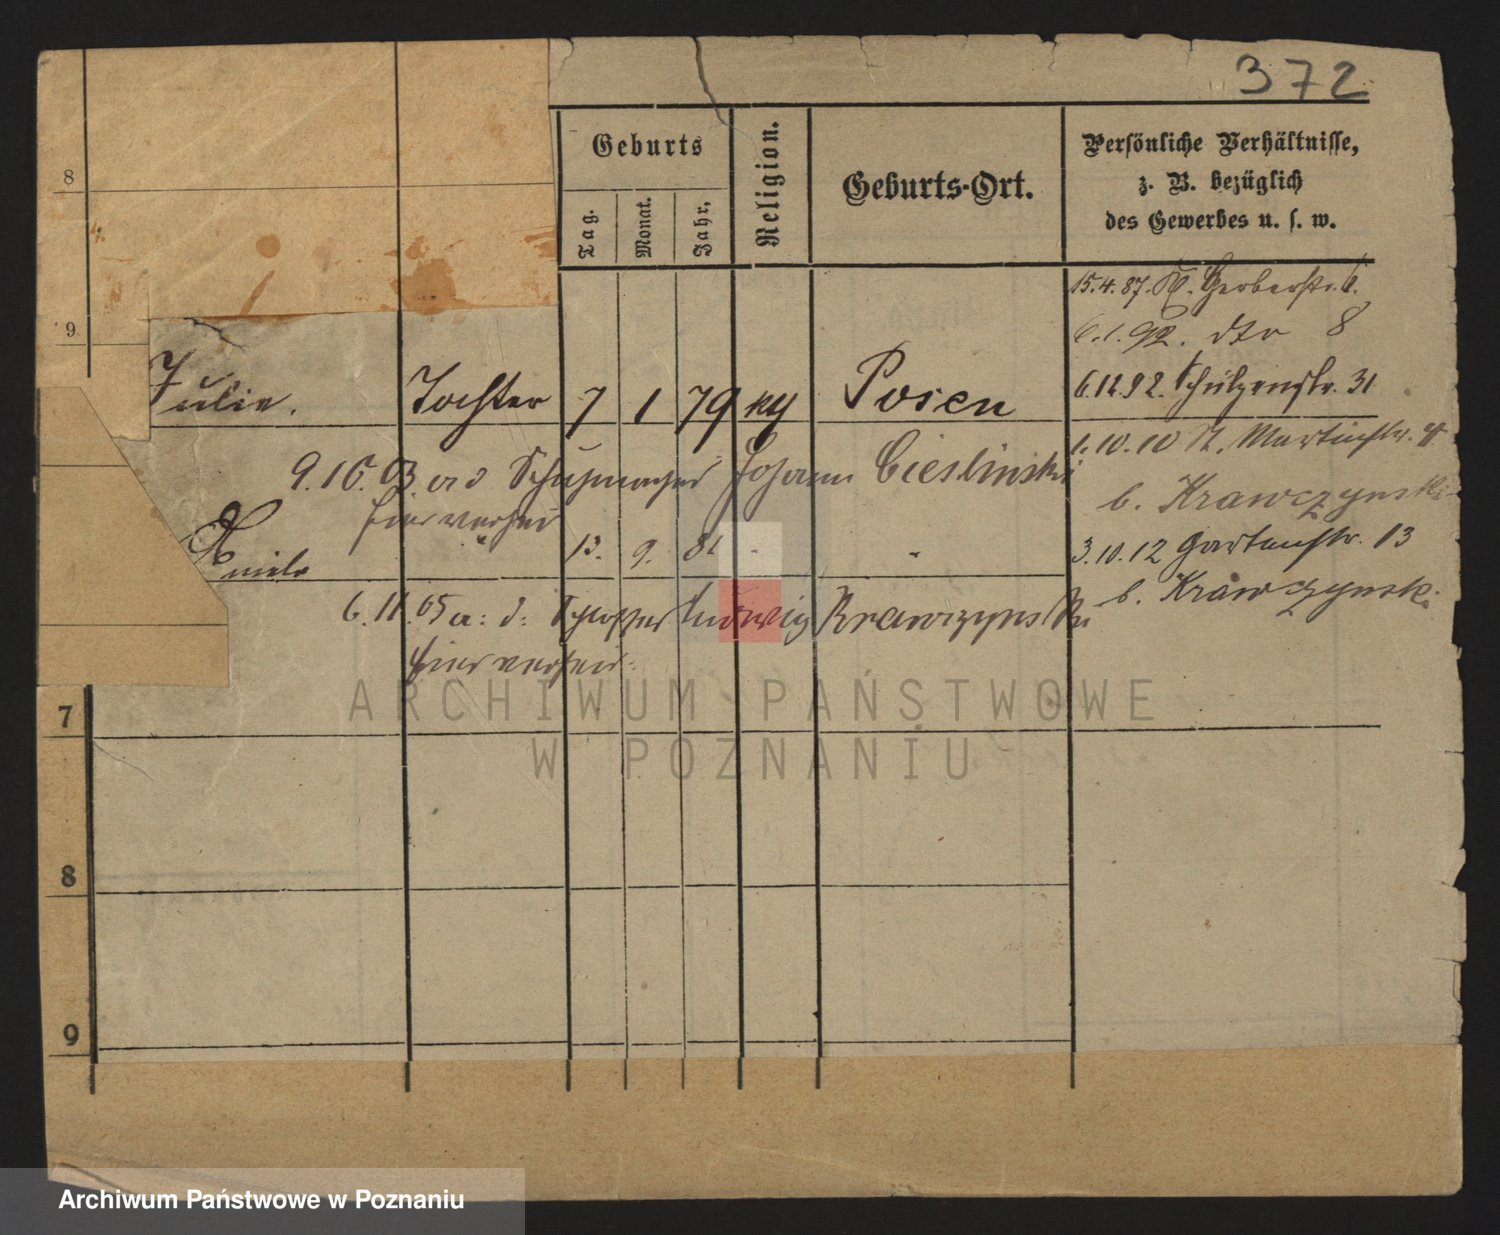 372
Geburts
Religion.
Geburts-Ort.
Persönliche Verhältnisse,
z. B. bezüglich
des Gewerbes u. s. w.
Tag.
Monat.
Jahr,
8
9
15.4.87. Gerberstr. 6.
6.1.92. dto 8
Julie. Tochter 7 1 79 Posen
6.12.92. Schützenstr. 31
1.10.10 St. Martinstr.
9.10.03. Schuhmacher Johann Cieslinski
b. Krawczynski
hier verheir
13. 9. 81 " "
3.10.12 Gartenstr. 13
6.11.05 a: d: Schlosser Ludwig Krawczynski
b. Krawczynski
hier verheir:
7
8
9
ARCHIWUM PAŃSTWOWE
W POZNANIU
Archiwum Państwowe w Poznaniu